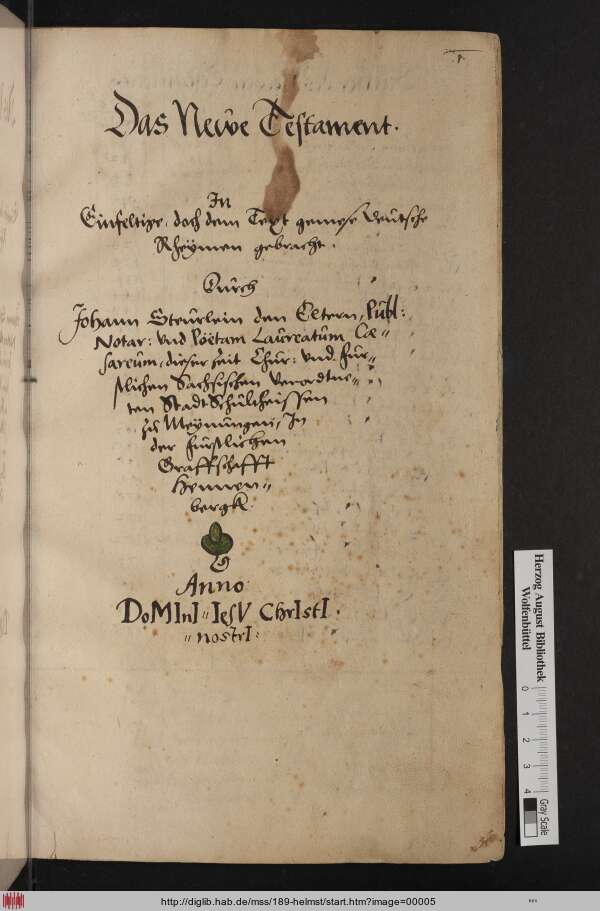 .1.
Das Newe Testament.
In
Einfeltige, doch dem Text gemese Deutsche
Rheymen gebracht.
Durch
Johann Steurlein den Eltern, Publ:
Notar: vnd Poëtam Laureatum Cæ-
sareum, dieser Zeit Chur: vnd Fur=
stlichen Sachsischen Verordtne=
ten Stadt Schultheissen
zu Meynungen, In
der Furstlichen
Graffschafft
Hennen=
bergk
Anno
DoMInI= IesV ChrIstI.
=nostrI:
Herzog August Bibliothek
Wolfenbüttel
0 1 2 3 4
Gray Scale
http://diglib.hab.de/mss/189-helmst/start.htm?image=00005